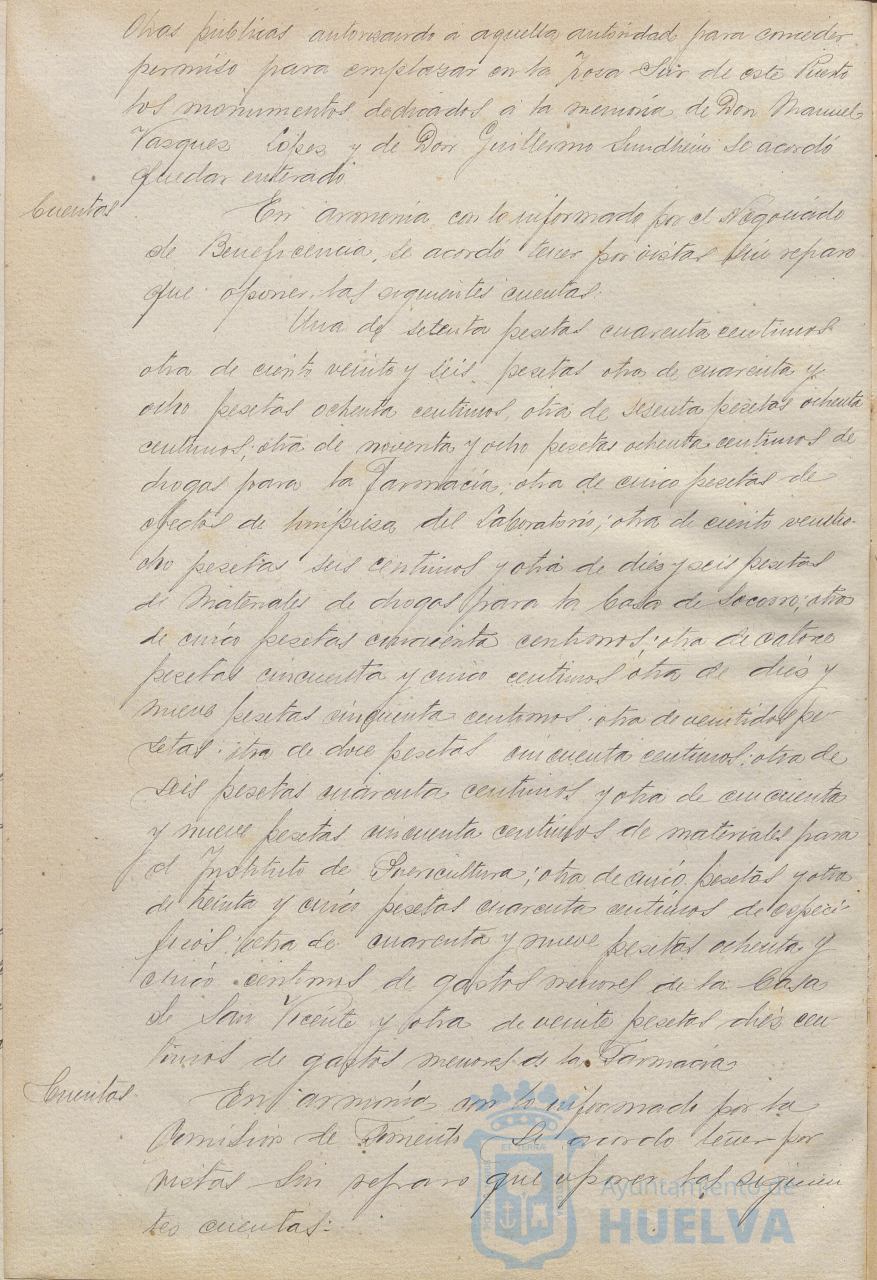 Obras públicas autorizando a aquella autoridad para conceder
permiso para emplazar en la Zona Sur de este Puerto
los monumentos dedicados a la memoria de Don Manuel
Vazquez Lopez y de Don Guillermo Sundheim se acordó
quedar enterado.
Cuentas
En armonía con lo informado por el Negociado
de Beneficencia, se acordó tener por vistas sin reparo
que oponer, las siguientes cuentas.
Una de setenta pesetas cuarenta centimos
otra de ciento veinte y seis pesetas otra de cuarenta y
ocho pesetas ochenta centimos, otra de sesenta pesetas ochenta
centimos; otra de noventa y ocho pesetas ochenta centimos de
drogas para la Farmacia; otra de cinco pesetas de
efectos de limpieza del Laboratorio; otra de ciento veintio-
cho pesetas seis centimos y otra de dies y seis pesetas
de materiales de drogas para la Casa de Socorro; otra
de cinco pesetas cincuenta centimos; otra de catorce
pesetas cincuenta y cinco centimos otra de dies y
nueve pesetas cincuenta centimos; otra de veintidos pe-
setas; otra de doce pesetas cincuenta centimos; otra de
seis pesetas cuarenta centimos y otra de cincuenta
y nueve pesetas cincuenta centimos de materiales para
el Instituto de Puericultura; otra de cinco pesetas y otra
de treinta y cinco pesetas cuarenta centimos de especi-
ficos; otra de cuarenta y nueve pesetas ochenta y
cinco centimos de gastos menores de la Casa
de San Vicente y otra de veinte pesetas dies cen-
timos de gastos menores de la Farmacia
Cuentas
En armonía con lo informado por la
Comision de Fomento se acordó tener por
vistas sin reparo que oponer las siguien
tes cuentas:
Ayuntamiento de
HUELVA